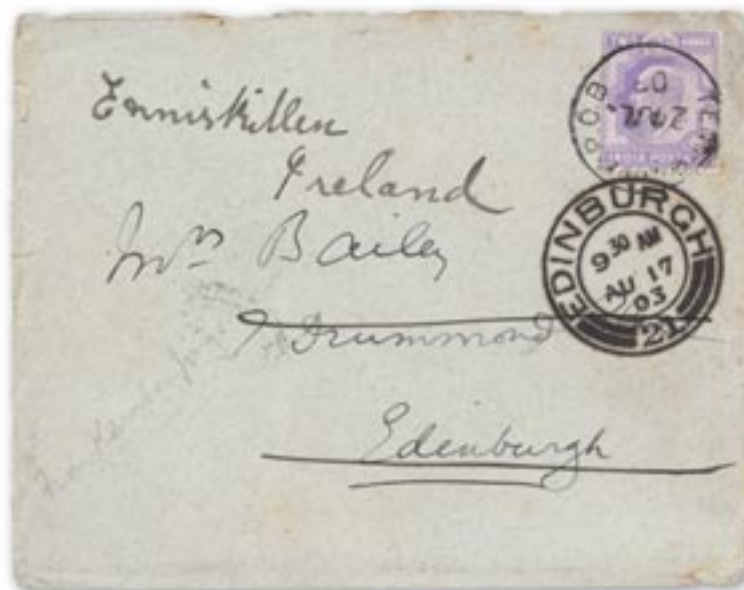 Enniskillen
Ireland
Mrs Bailey
Drummond
Edenburgh
INDIA
24 JL
03
EDINBURGH
9 30 AM
AU 17
03
21